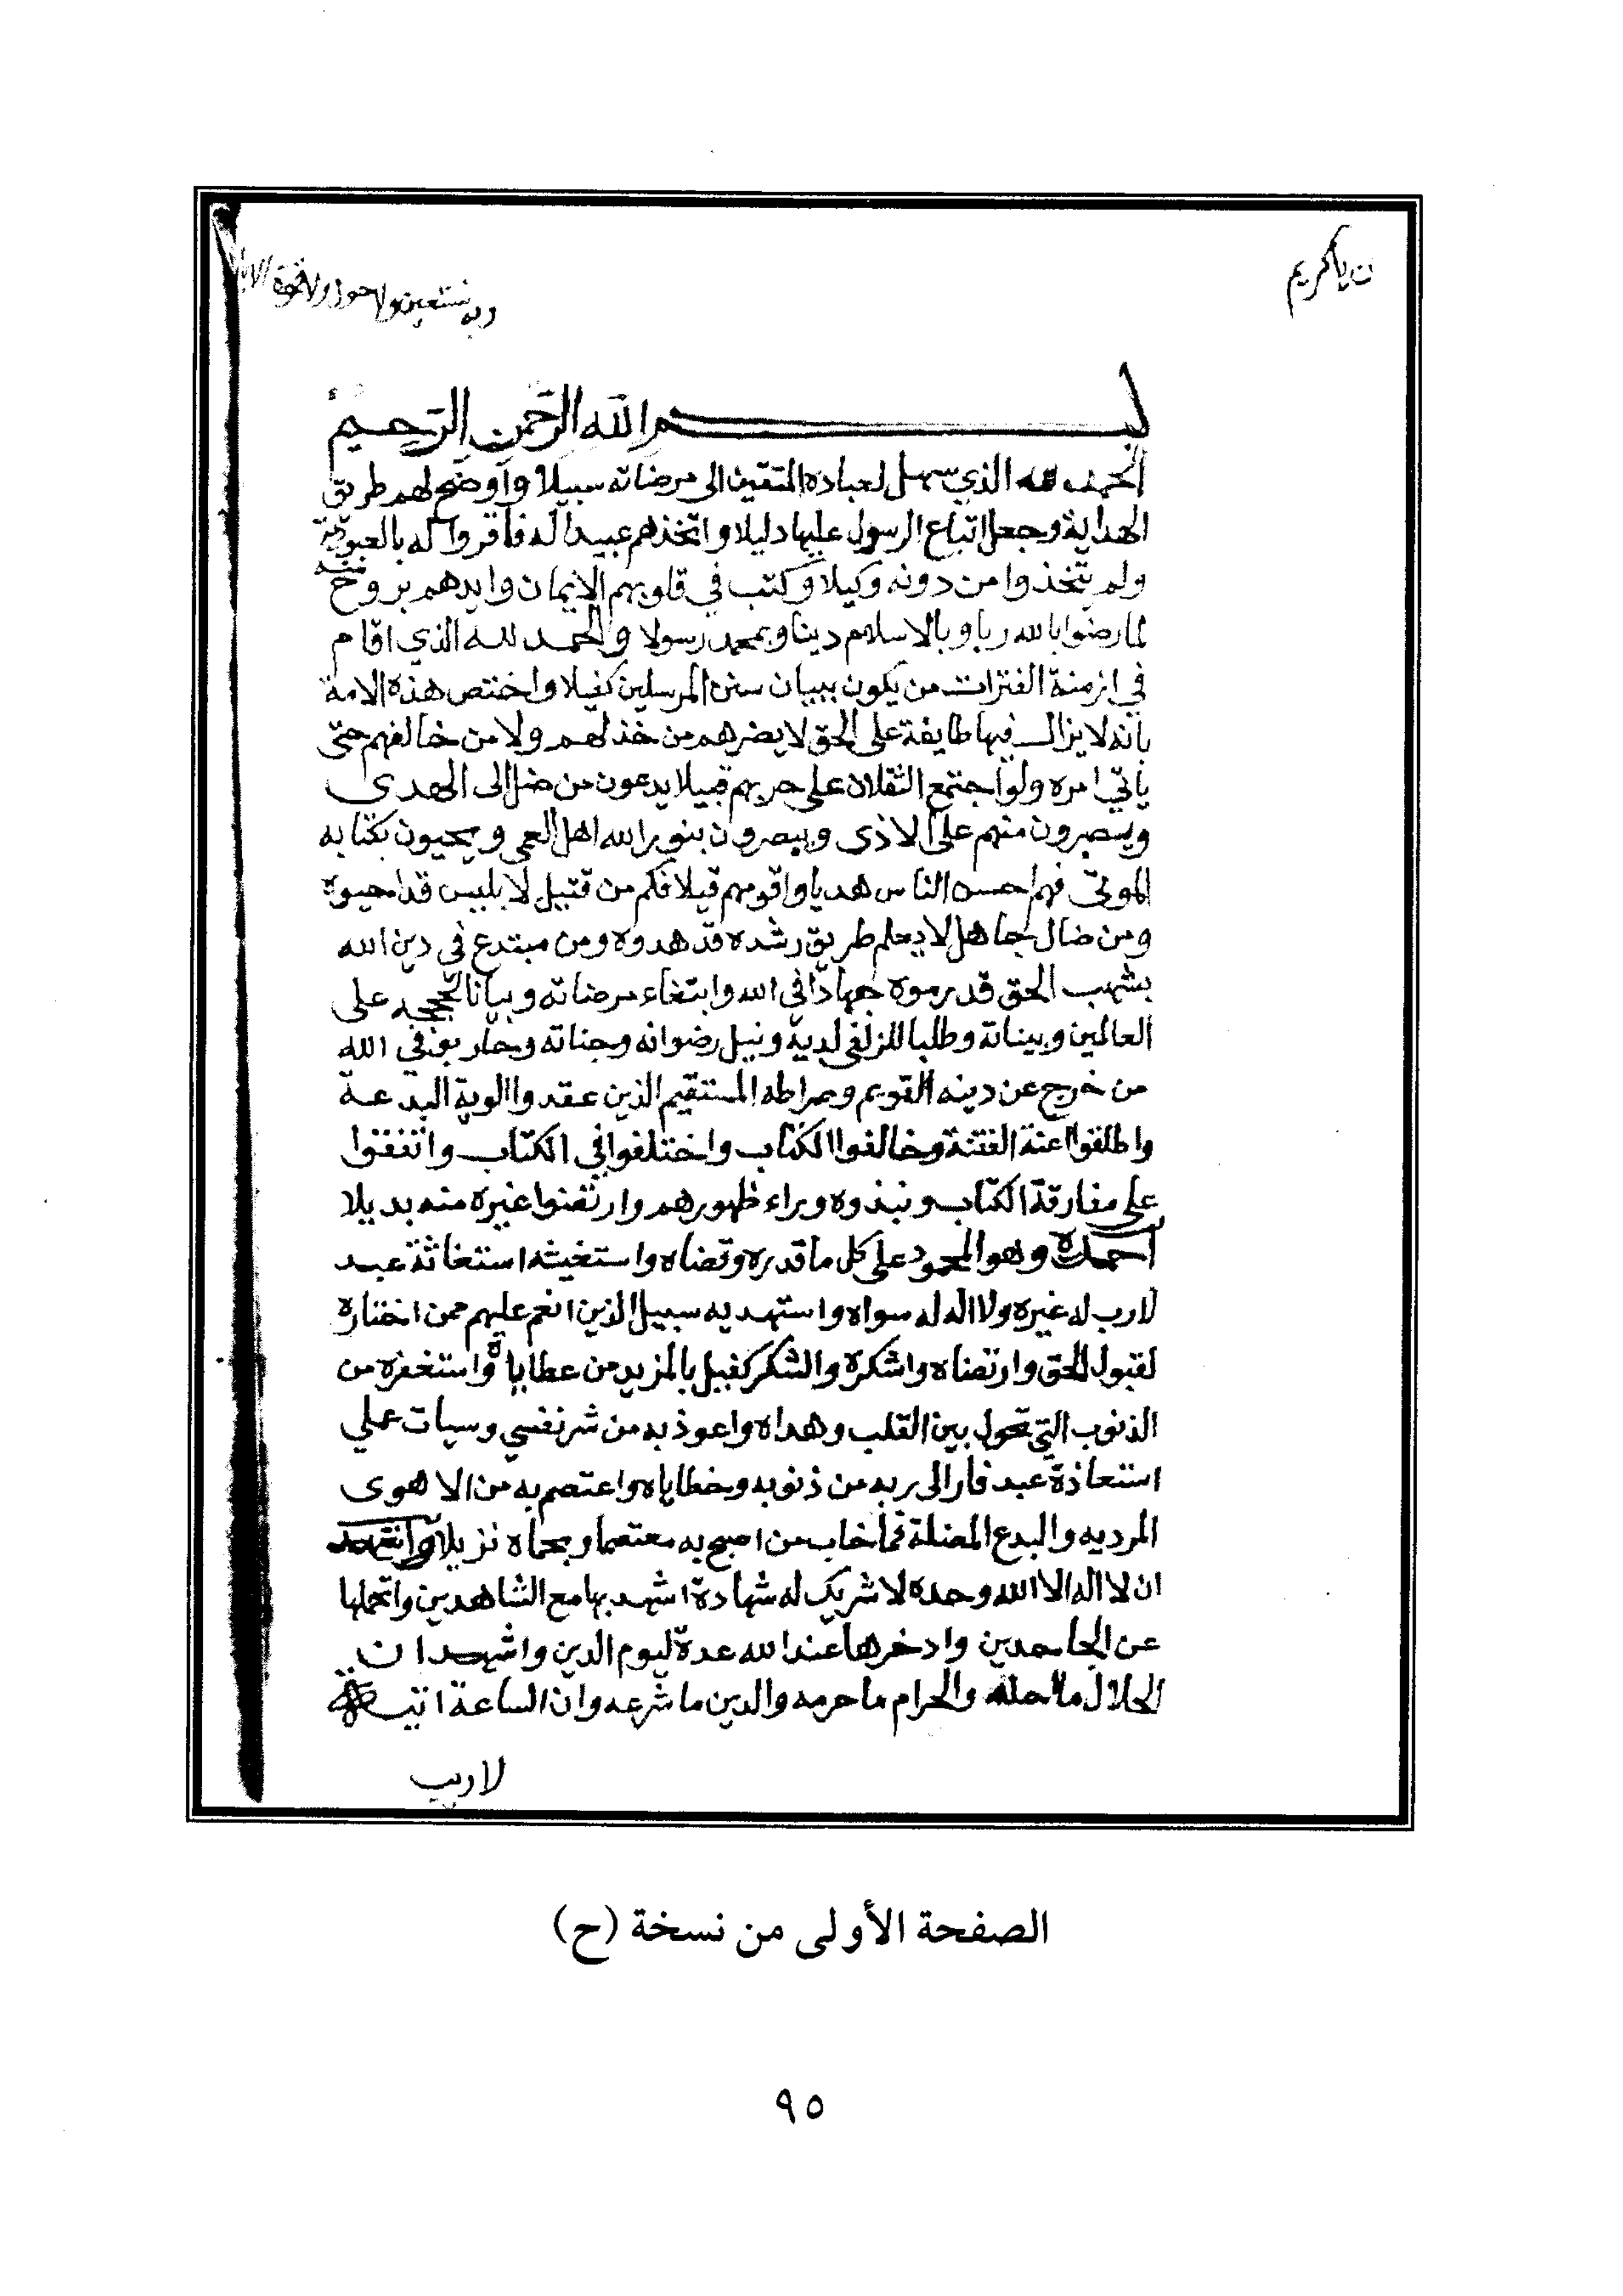 ن ياكريم
وبه نستعين ولا حول ولا قوة الا
بسم الله الرحمن الرحيم
الحمد لله الذي سهل لعباده المتقين الى مرضاته سبيلا واوضح لهم طريق
الهداية وجعل اتباع الرسول عليها دليلا واتخذهم عبيدا له فاقروا له بالعبودية
ولم يتخذوا من دونه وكيلا وكتب في قلوبهم الايمان وايدهم بروح منه
لما رضوا بالله ربا وبالاسلام دينا وبمحمد رسولا والحمد لله الذي اقام
في ازمنة الفترات من يكون ببيان سنن المرسلين كفيلا واختص هذه الامة
بانه لا يزال فيها طايفة على الحق لا يضرهم من خذلهم ولا من خالفهم حتى
ياتي امره ولو اجتمع الثقلان على حربهم قبيلا يدعون من ضل الى الهدى
ويصبرون منهم على الاذى ويبصرون بنور الله اهل العمى ويحيون بكتابه
الموتى فهم احسن الناس هديا واقومهم قيلا فكم من قتيل لابليس قد احيوه
ومن ضال جاهل لا يعلم طريق رشده قد هدوه ومن مبتدع في دين الله
بشهب الحق قد رموه جهادا في الله وابتغاء مرضاته وبيانا لحججه على
العالمين وبيناته وطلبا للزلفى لديه ونيل رضوانه وجناته وحاربوا في الله
من خرج عن دينه القويم وصراطه المستقيم الذين عقدوا الوية البدعة
واطلقوا اعنة الفتنة وخالفوا الكتاب واختلفوا في الكتاب واتفقوا
على مفارقة الكتاب ونبذوه وراء ظهورهم وارتضوا غيره منه بديلا
احمده وهو المحمود على كل ما قدره وقضاه واستغيثه استغاثة عبد
لا رب له غيره ولا اله له سواه واستهديه سبيل الذين انعم عليهم ممن اختاره
لقبول الحق وارتضاه واشكره والشكر كفيل بالمزيد من عطاياه واستغفره من
الذنوب التي تحول بين القلب وهداه واعوذ به من شر نفسي وسيات عملي
استعاذة عبد فار الى ربه من ذنوبه وخطاياه واعتصم به من الاهوى
المرديه والبدع المضلة فما خاب من اصبح به معتصما وبحماه نزيلا واشهد
ان لا اله الا الله وحده لا شريك له شهادة اشهد بها مع الشاهدين واتحملها
عن الجاحدين وادخرها عند الله عدة ليوم الدين واشهد ان
الحلال ما احله والحرام ما حرمه والدين ما شرعه وان الساعة اتية
لا ريب
الصفحة الأولى من نسخة (ح)
٩٥